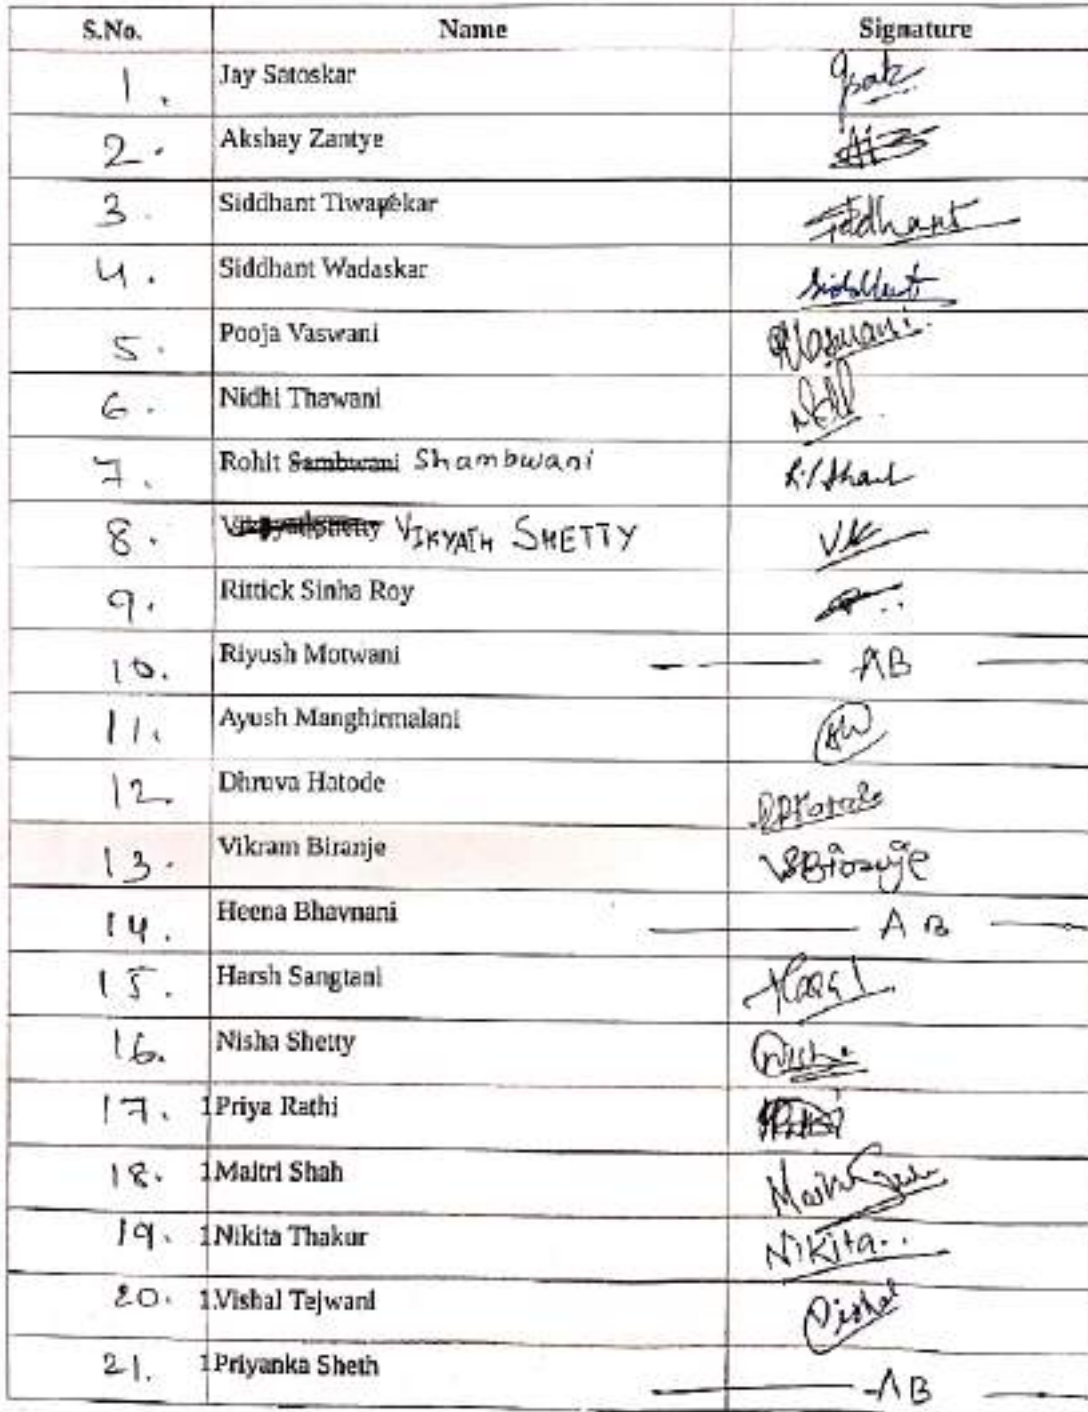 S.No. Name Signature
1. Jay Satoskar
2. Akshay Zantye
3. Siddhant Tiwarekar Siddhant
4. Siddhant Wadaskar Siddhant
5. Pooja Vaswani PVaswani.
6. Nidhi Thawani Nidhi
7. Rohit Sambwani Shambwani
8. VIKYATH SHETTY VK
9. Rittick Sinha Roy
10. Riyush Motwani AB
11. Ayush Manghirmalani
12. Dhruva Hatode
13. Vikram Biranje VSBiranje
14. Heena Bhavnani AB
15. Harsh Sangtani
16. Nisha Shetty Nisha
17. 1Priya Rathi
18. 1Maitri Shah
19. 1Nikita Thakur Nikita..
20. 1.Vishal Tejwani Vishal
21. 1Priyanka Sheth AB